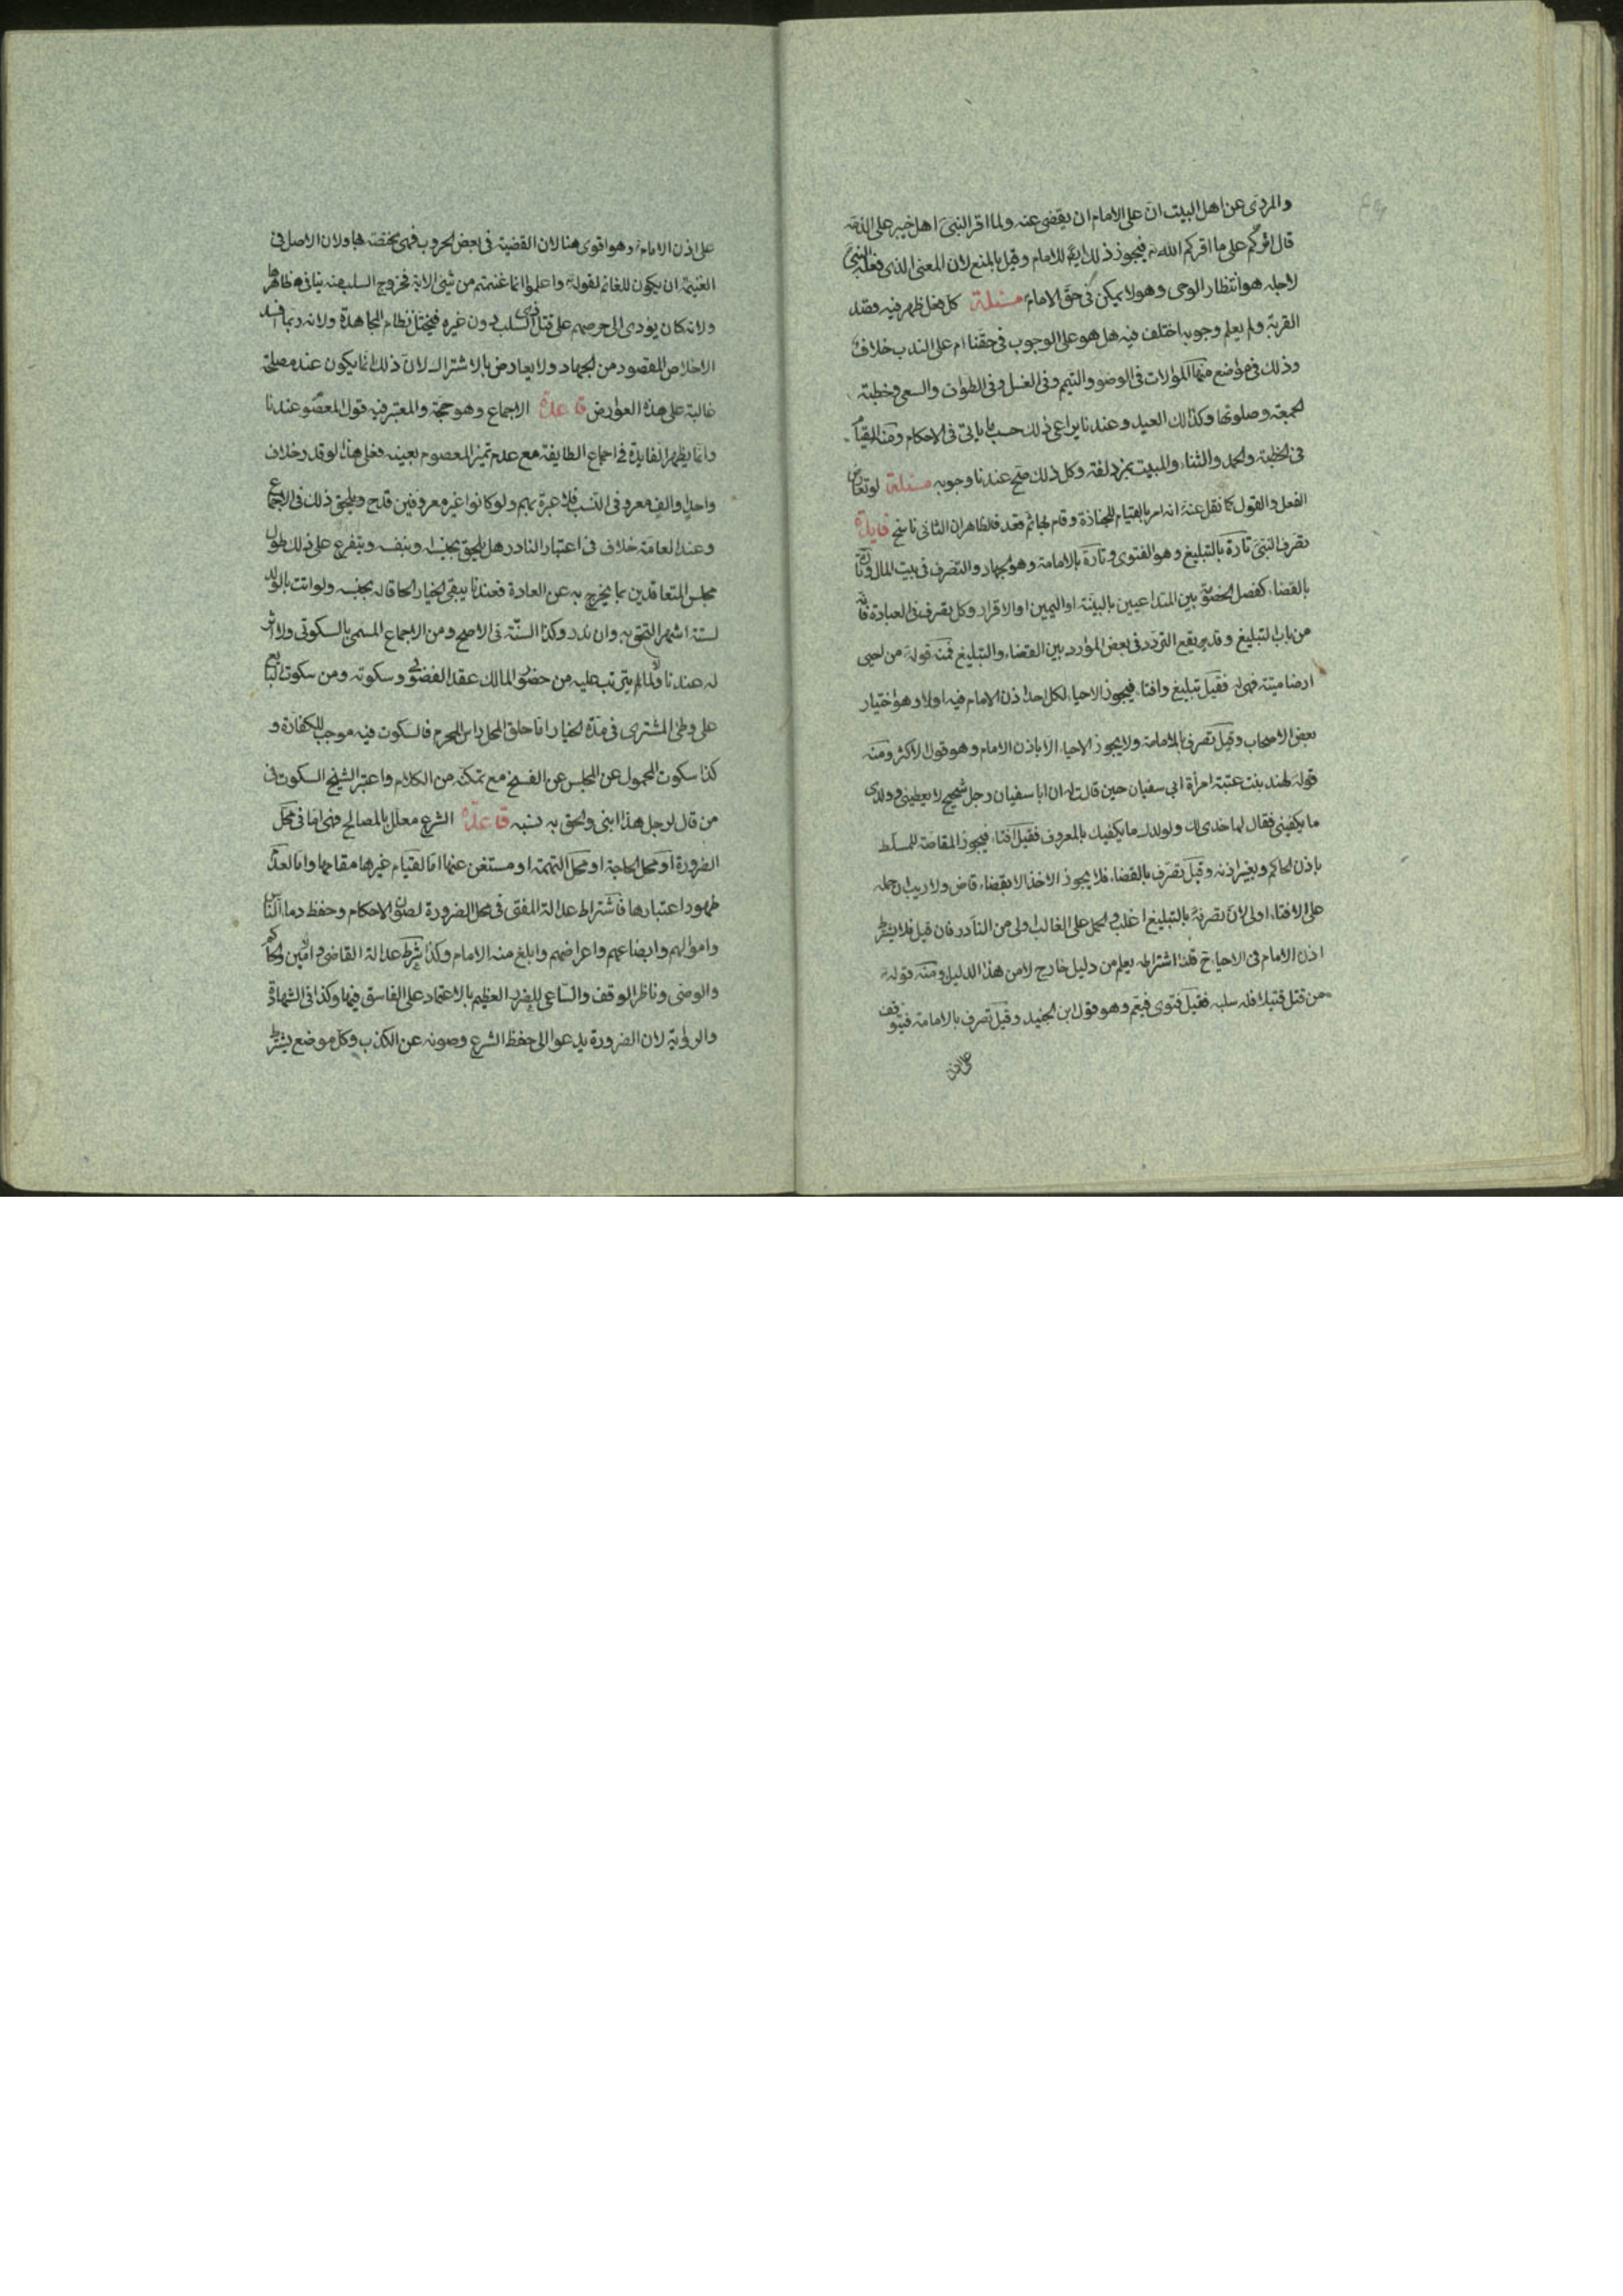 والمروى عن اهل البيت ان على الامام ان يقضى عنه ولما اقر النبى اهل خيبر على الذمة
قال اقركم على ما اقركم الله فيجوز ذلك ايضا للامام وقيل بالمنع لان المعنى الذى فعله النبى
لاجله هو انتظار الوحى وهو لا يمكن فى حق الامام مسئلة كل فعل ظهر فيه قصد
القربة ولم يعلم وجوبه اختلف فيه هل هو على الوجوب فى حقنا ام على الندب خلاف
وذلك فى مواضع منها الموالات فى الوضوء والتيمم وفى الغسل وفى الطواف والسعى وخطبة
الجمعة وصلوتها وكذلك العيد وعندنا يراعى ذلك حسب ما ياتى فى الاحكام ومنه القيام
فى الخطبة والحمد والثناء والمبيت بمزدلفة وكل ذلك صح عندنا وجوبه مسئلة لو تعارض
الفعل والقول كما نقل عنه انه امر بالقيام للجنازة وقام لها ثم قعد فالظاهر ان الثانى ناسخ فايدة
تصرف النبى تارة بالتبليغ وهو الفتوى وتارة بالامامة وهو الجهاد والتصرف فى بيت المال وتارة
بالقضاء كفصل الخصومة بين المتداعيين بالبينة او اليمين او الاقرار وكل تصرف فى العبادة فانه
من باب التبليغ وقد يقع التردد فى بعض الموارد بين القضاء والتبليغ فمنه قوله من احيى
ارضا ميتة فهى له فقيل تبليغ وافتاء فيجوز الاحياء لكل احد اذن الامام فيه اولا وهو اختيار
بعض الاصحاب وقيل تصرف بالامامة ولا يجوز الاحياء الا باذن الامام وهو قول الاكثر ومنه
قوله لهند بنت عتبة امرأة ابى سفيان حين قالت له ان ابا سفيان رجل شحيح لا يعطينى وولدى
ما يكفينى فقال لها خذى لك ولولدك ما يكفيك بالمعروف فقيل افتاء فيجوز المقاصة للمسلط
باذن الحاكم وبغير اذنه وقيل تصرف بالقضاء فلا يجوز الاخذ الا بقضاء قاض ولا ريب ان حمله
على الافتاء اولى لان تصرفه بالتبليغ اغلب والحمل على الغالب اولى من النادر فان قيل فلا يشترط
اذن الامام فى الاحياء ح قلنا اشتراطه يعلم من دليل خارج لا من هذا الدليل ومنه قوله
من قتل قتيلا فله سلبه فقيل فتوى فيعم وهو قول ابن الجنيد وقيل تصرف بالامامة فيتوقف
على اذن
على اذن الامام وهو اقوى هنا لان القضية فى بعض الحروب فهى مختصة بها ولان الاصل فى
الغنيمة ان يكون للغانم لقوله واعلموا انما غنمتم من شئ الاية فخروج السلب منه ينافى ظاهرها
ولانه كان يؤدى الى حرصهم على قتل ذى السلب دون غيره فيختل نظام المجاهدة ولانه ربما افسد
الاخلاص المقصود من الجهاد ولا يعارض بالاشتراك لان ذلك انما يكون عند مصلحة
غالبة على هذه العوارض قاعدة الاجماع وهو حجة والمعتبر فيه قول المعصوم عندنا
وانما يظهر الفايدة فى اجماع الطايفة مع عدم تميز المعصوم بعينه فعلى هذا لو قدر خلاف
واحد او الف معروفى النسب فلا عبرة بهم ولو كانوا غير معروفين قدح ويلحق ذلك فى الاجماع
وعند العامة خلاف فى اعتبار النادر هل يلحق بجنسه او بنفسه ويتفرع على ذلك طول
مجلس المتعاقدين بما يخرج به عن العادة فعندنا يبقى الخيار الحاقا له بجنسه ولو اتت بالولد
لستة اشهر التحق به وان ندر وكذا السنة فى الاصح ومن الاجماع المسمى بالسكوتى ولا اثر
له عندنا ولما لم يترتب عليه من حضور المالك عقد الفضولى وسكوته ومن سكوت البايع
على وطئ المشترى فى مدة الخيار اما حلق المحل راس المحرم فالسكوت فيه موجب للكفارة و
كذا سكوت المحمول عن المجلس عن الفسخ مع تمكنه من الكلام واعتبر الشيخ السكوت فى
من قال لرجل هذا ابنى والحق به نسبه قاعدة الشرع معلل بالمصالح فهى اما فى محل
الضرورة او محل الحاجة او محل التتمة او مستغن عنها اما لقيام غيرها مقامها واما لعدم
ظهور اعتبارها فاشتراط عدالة المفتى فى محل الضرورة لصون الاحكام وحفظ دماء الناس
واموالهم وابضاعهم واعراضهم وابلغ منه الامام وكذا شرط عدالة القاضى وامين الحاكم
والوصى وناظر الوقف والساعى للضرر العظيم بالاعتماد على الفاسق فيها وكذا فى الشهادة
والرواية لان الضرورة يدعوا الى حفظ الشرع وصونه عن الكذب وكل موضع يشترط